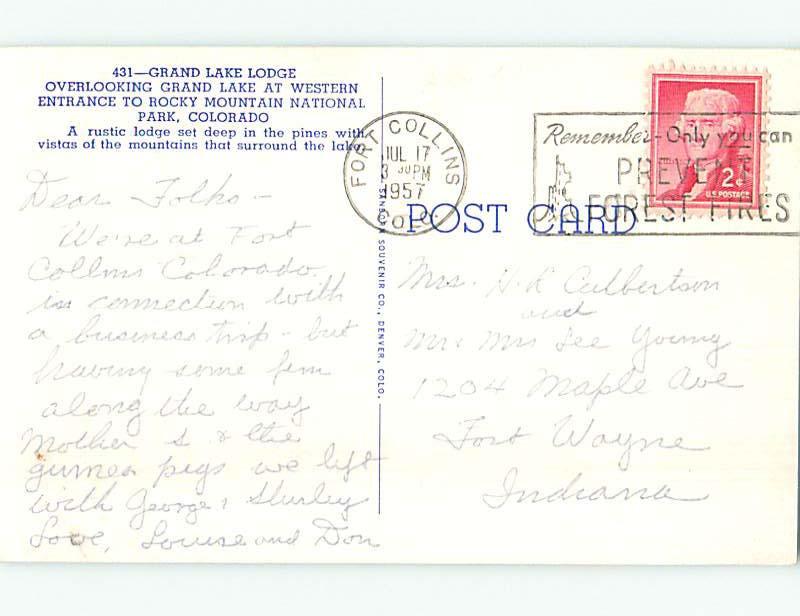 431—GRAND LAKE LODGE
OVERLOOKING GRAND LAKE AT WESTERN
ENTRANCE TO ROCKY MOUNTAIN NATIONAL
PARK, COLORADO
A rustic lodge set deep in the pines with
vistas of the mountains that surround the lake.
FORT COLLINS
JUL 17
3 30 PM
1957
COLO.
Remember-Only you can
PREVENT
FOREST FIRES
2¢
U.S. POSTAGE
POST CARD
SANBORN SOUVENIR CO., DENVER, COLO.
Dear Folks -
We're at Fort
Collins Colorado.
in connection with
a business trip - but
having some fun
along the way
Mother S & the
guinea pigs we left
with George & Shurley
Love, Louise and Don
Mrs. H. L Culbertson
and
Mr. Mrs Lee Young
1204 Maple Ave
Fort Wayne
Indiana